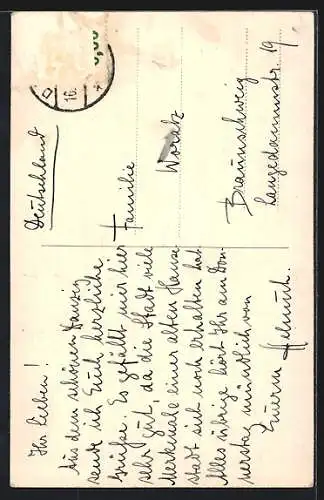 Ihr Lieben!
Aus dem schönen Danzig
sende ich Euch herzliche
Grüße. Es gefällt mir hier
sehr gut, da die Stadt viele
Merkmale einer alten Hanse
stadt sich noch erhalten hat.
Alles übrige hört Ihr am Don-
nerstag mündlich von
Eurem Helmut.
Deutschland
Familie
Braunschweig
Langedammstr. 19
16.
0,00